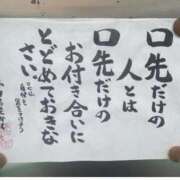 口先だけの
人とは
口先だけの
お付き合いに
とどめておきな
さい。